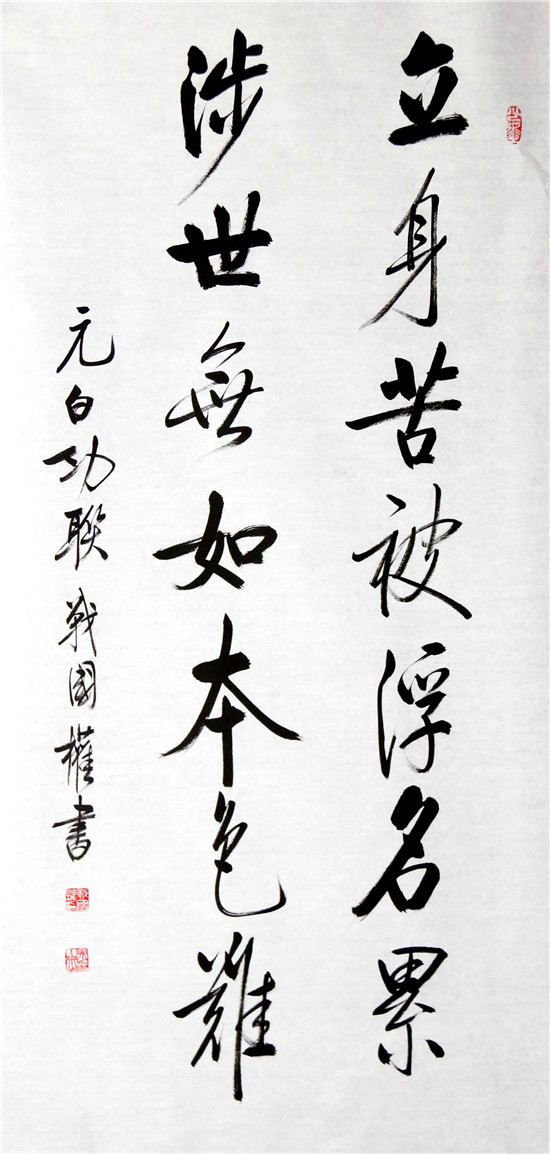 立身苦被浮名累
涉世無如本色難
元白功聯 戰國權書